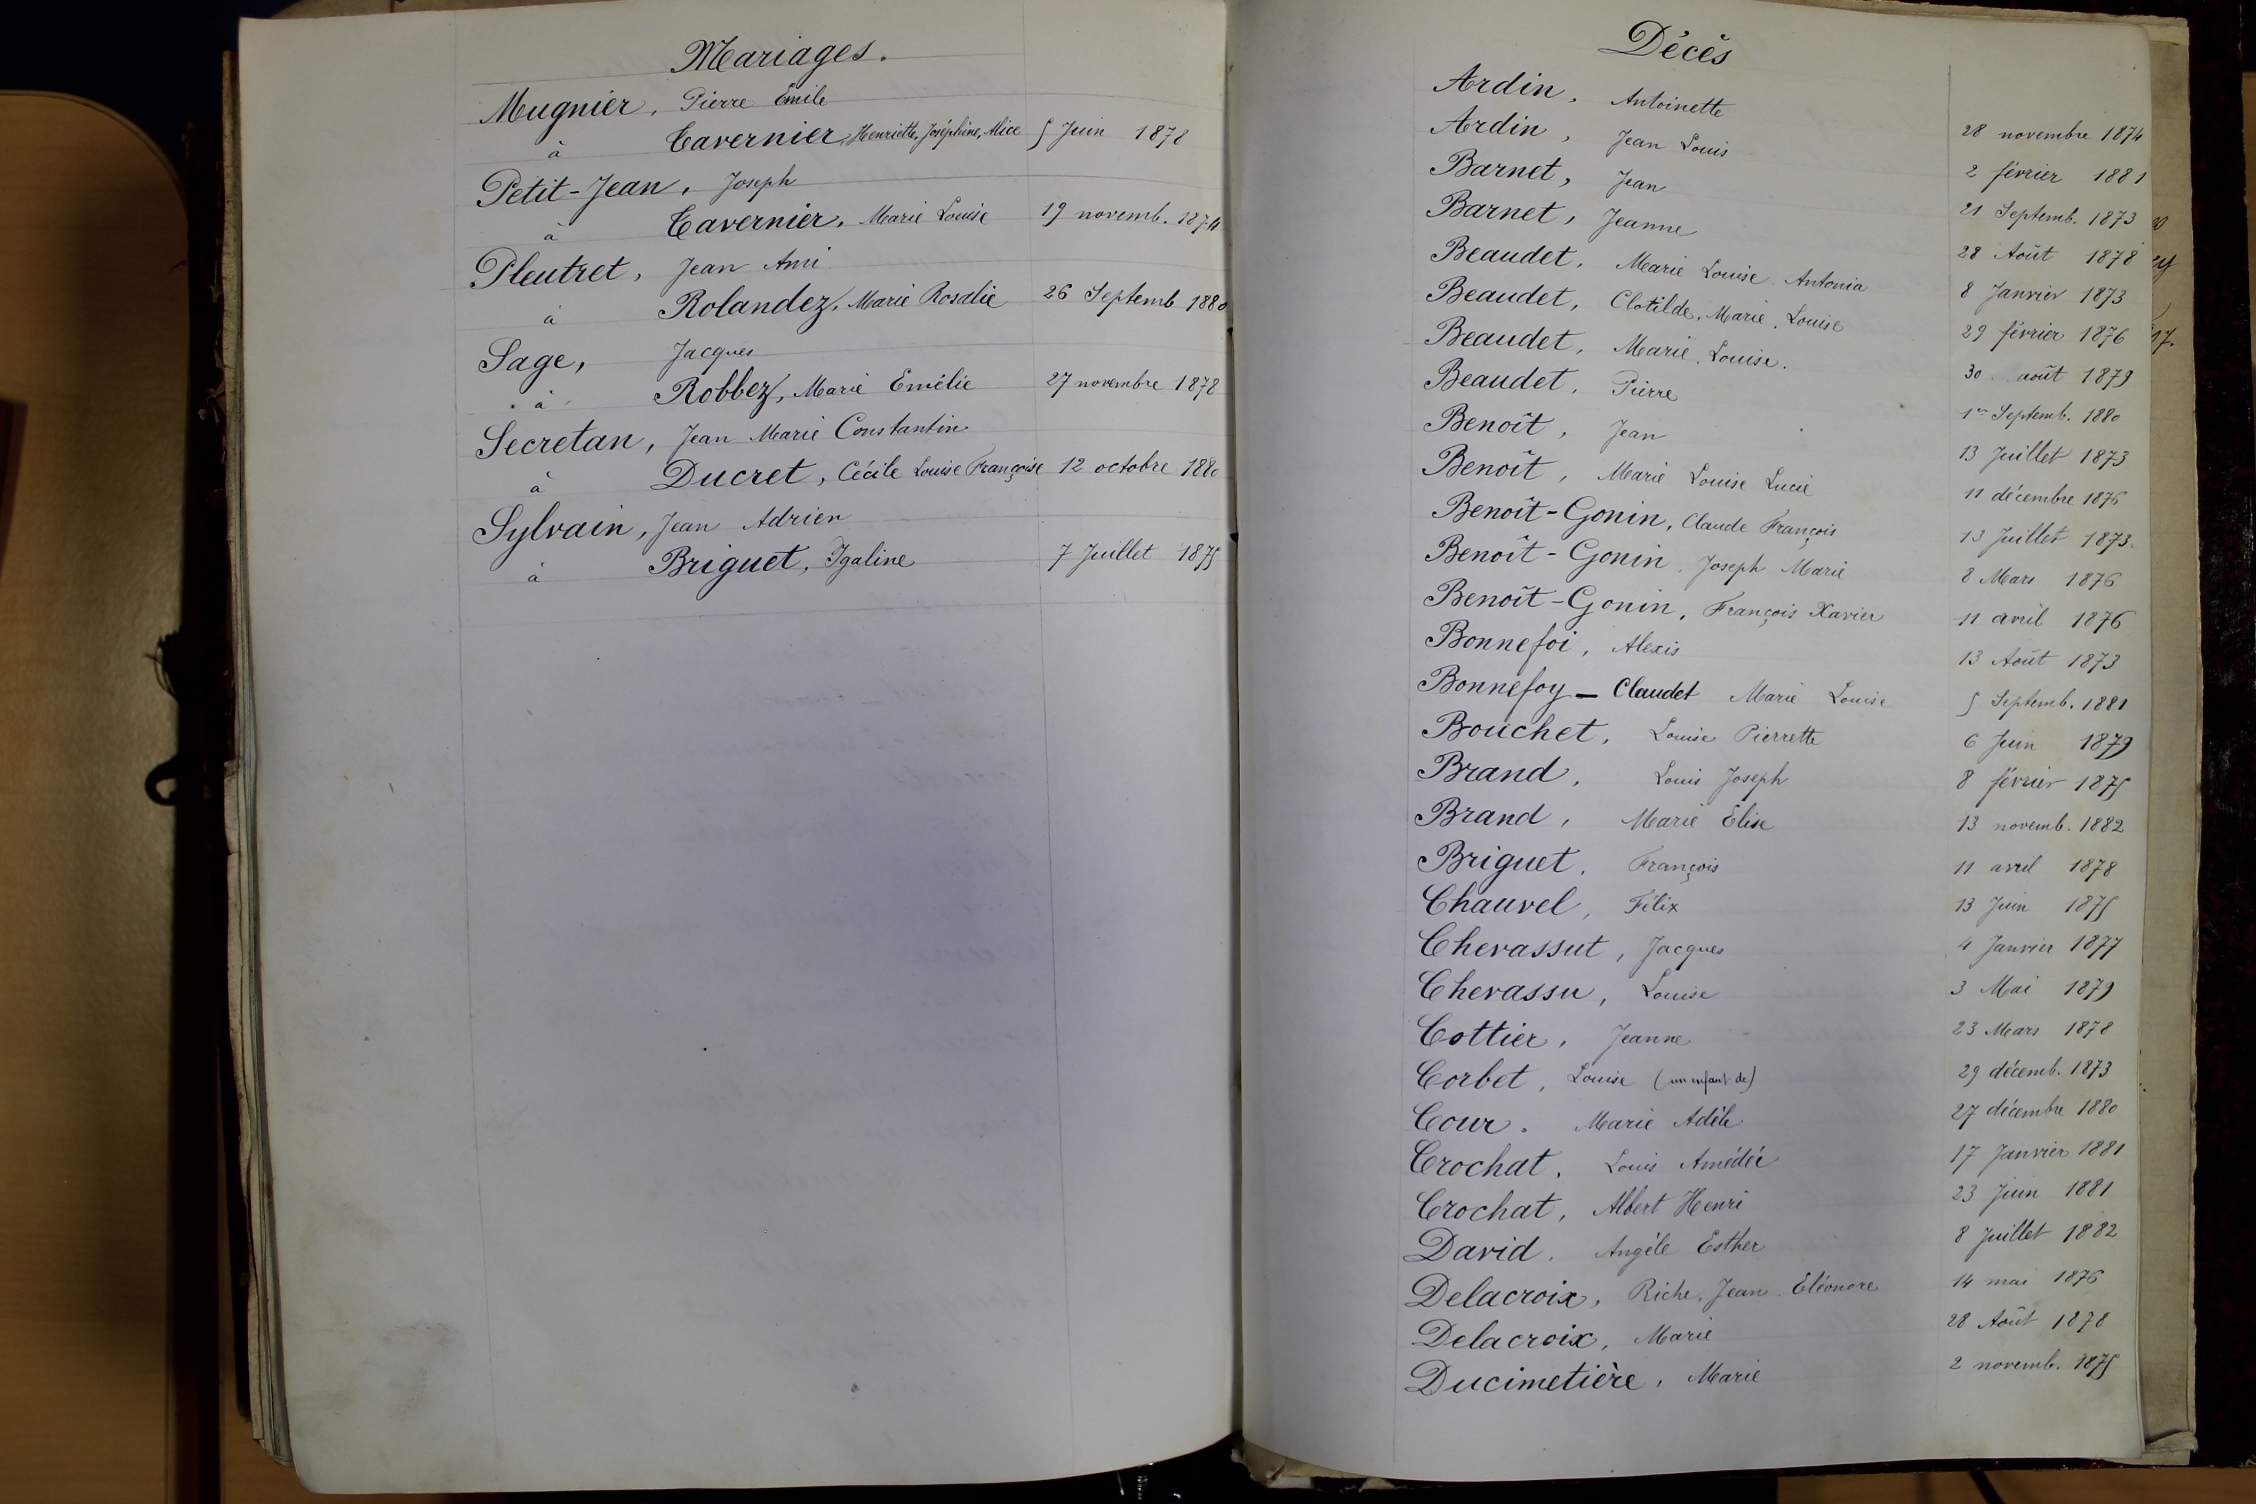 Mariages.
Mugnier, Pierre Emile
à Tavernier, Henriette, Joséphine, Alice 5 Juin 1878
Petit-Jean, Joseph
à Tavernier, Marie Louise 19 novemb. 1874
Pleutret, Jean Ami
à Rolandez, Marie Rosalie 26 Septemb 1880
Sage, Jacques
à Robbez, Marie Emélie 27 novembre 1878
Secretan, Jean Marie Constantin
à Ducret, Cécile Louise Françoise 12 octobre 1880
Sylvain, Jean Adrien
à Briguet, Igaline 7 Juillet 1875
Décès
Ardin, Antoinette 28 novembre 1874
Ardin, Jean Louis 2 février 1881
Barnet, Jean 21 Septemb. 1873
Barnet, Jeanne 28 Août 1878
Beaudet, Marie Louise Antonia 8 Janvier 1873
Beaudet, Clotilde, Marie, Louise 29 février 1876
Beaudet, Marie, Louise. 30 août 1879
Beaudet, Pierre 1er Septemb. 1880
Benoît, Jean 13 Juillet 1873
Benoît, Marie Louise Lucie 11 décembre 1876
Benoît-Gonin, Claude François 13 Juillet 1873.
Benoît-Gonin, Joseph Marie 8 Mars 1876
Benoît-Gonin, François Xavier 11 avril 1876
Bonnefoi, Alexis 13 Août 1873
Bonnefoy - Claudet Marie Louise 5 Septemb. 1881
Bouchet, Louise Pierrette 6 Juin 1879
Brand, Louis Joseph 8 février 1875
Brand, Marie Elise 13 novemb. 1882
Briguet, François 11 avril 1878
Chauvel, Félix 13 Juin 1875
Chevassut, Jacques 4 Janvier 1877
Chevassu, Louise 3 Mai 1879
Cottier, Jeanne 23 Mars 1878
Corbet, Louise (un enfant de) 29 décemb. 1873
Cour. Marie Adèle 27 décembre 1880
Crochat, Louis Amédée 17 Janvier 1881
Crochat, Albert Henri 23 Juin 1881
David, Angèle Esther 8 Juillet 1882
Delacroix, Riche, Jean Eléonore 14 mai 1876
Delacroix, Marie 28 Août 1878
Ducimetière, Marie 2 novemb. 1875